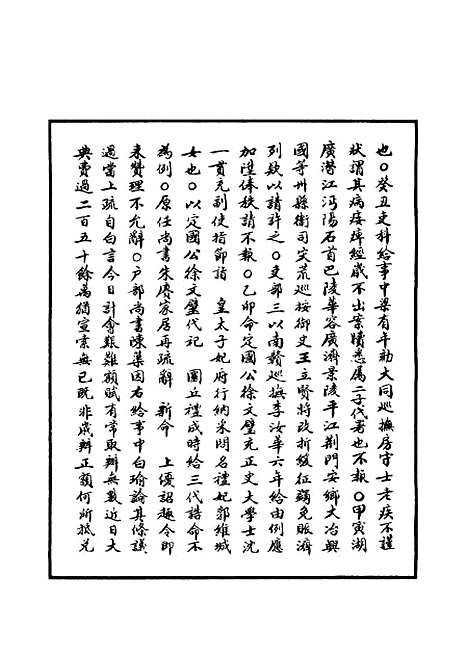 也○癸丑吏科給事中梁有年劾大同巡撫房守士老疾不謹
狀謂其病痿痺經歲不出案牘悉屬二子代署也不報○甲寅湖
廣潛江沔陽石首巴陵華容廣濟景陵平江荆門安鄉大冶興
國等州縣衛司災荒巡按御史王立賢將改折緩征蠲免賑濟
列欵以請許之○吏部三以南贛巡撫李汝華六年給由例應
加陞俸秩請不報○乙卯命定國公徐文璧充正史大學士沈
一貫充副使持節詣　皇太子妃府行納采問名禮妃郭維城
女也○以定國公徐文璧代祀　圜丘禮成時給三代誥命不
為例○原任尚書朱賡家居再疏辭　新命　上優詔趣令即
來贊理不允辭○户部尚書陳蕖因右給事中白瑜論其條議
過當上疏自白言今日計會艱難額賦有常取辦無數近日大
典費過二百五十餘萬猶宣索無已既非歲辦正額何所抵兑